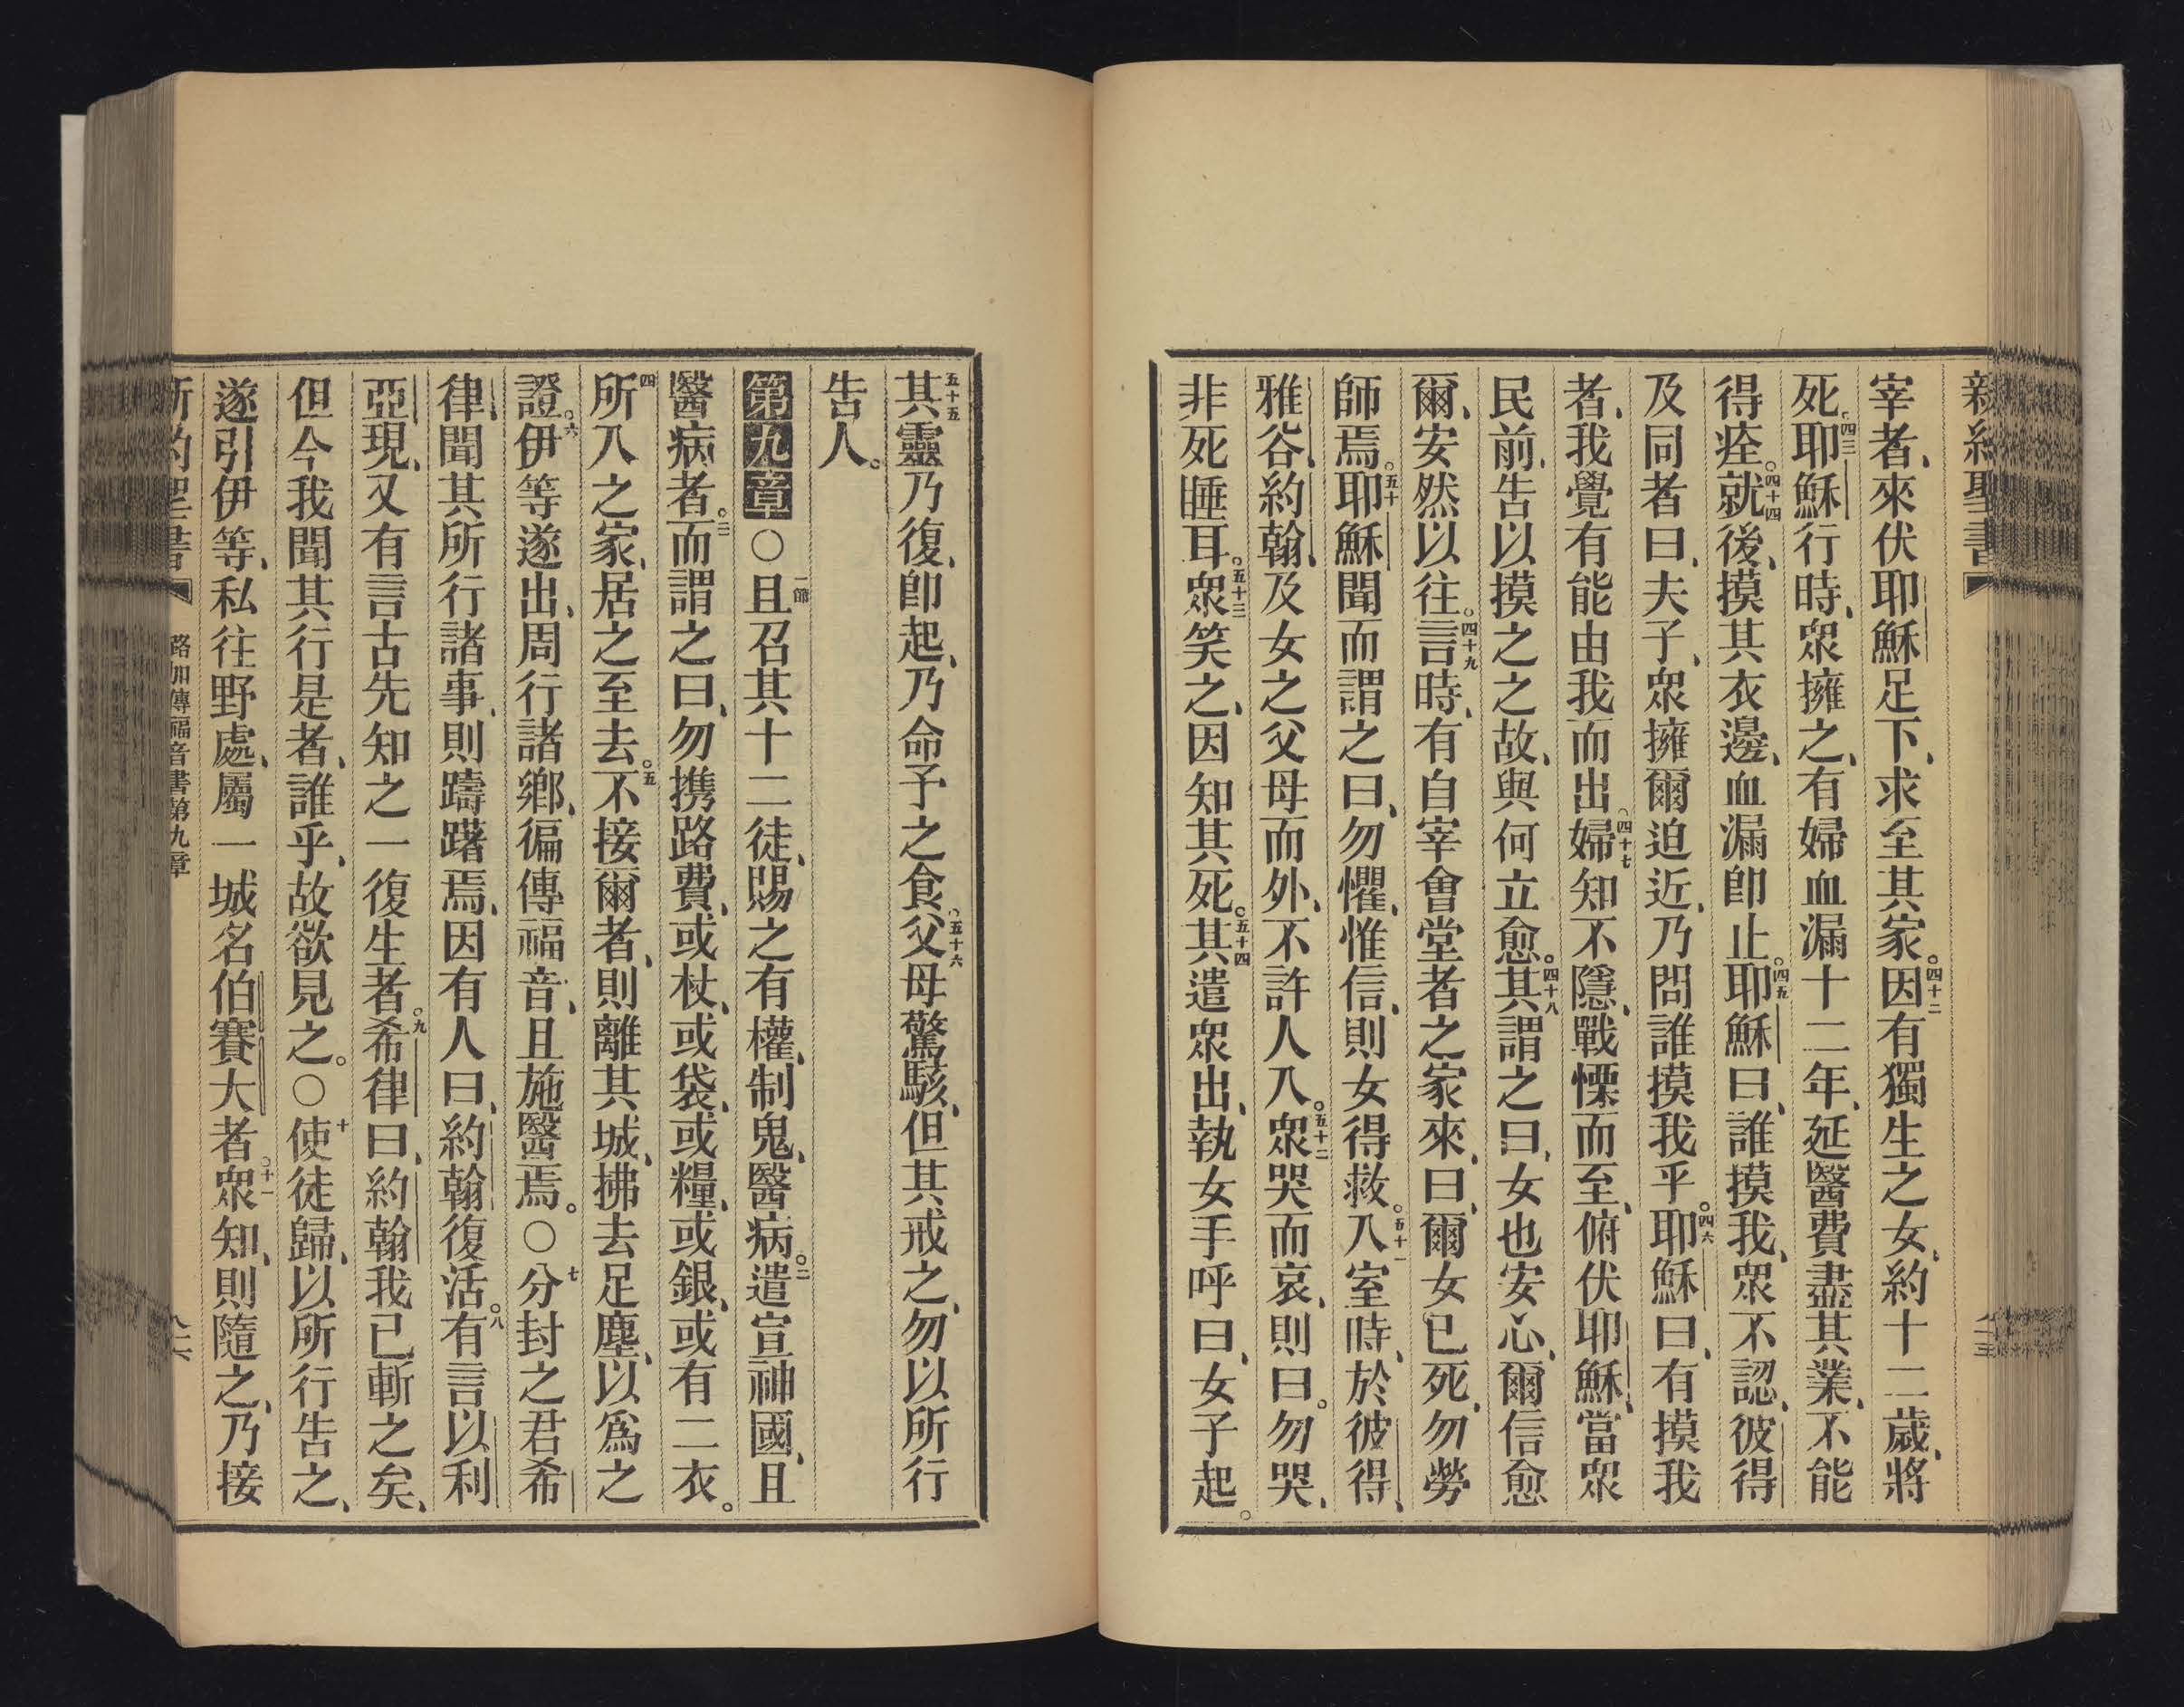 新約聖書
宰者、來伏耶穌足下、求至其家。四十二因有獨生之女、約十二歲、將
死。四三耶穌行時、衆擁之、有婦血漏十二年、延醫費盡其業、不能
得痊。四十四就後、摸其衣邊、血漏卽止。四五耶穌曰、誰摸我、衆不認、彼得
及同者曰、夫子、衆擁爾迫近、乃問誰摸我乎。四六耶穌曰、有摸我
者、我覺有能由我而出。四十七婦知不隱、戰慄而至、俯伏耶穌、當衆
民前、告以摸之之故、與何立愈。四十八其謂之曰、女也安心、爾信愈
爾、安然以往。四十九言時、有自宰會堂者之家來、曰、爾女已死、勿勞
師焉。五十耶穌聞而謂之曰、勿懼、惟信、則女得救。五十一入室時、於彼得、
雅谷、約翰、及女之父母而外、不許人入。五十二衆哭而哀、則曰。勿哭、
非死睡耳。五十三衆笑之、因知其死。五十四其遣衆出、執女手呼曰、女子起。
五十五其靈乃復、卽起、乃命予之食。五十六父母驚駭、但其戒之、勿以所行
告人。
第九章○一節且召其十二徒、賜之有權、制鬼、醫病。二遣宣神國、且
醫病者。三而謂之曰、勿携路費、或杖、或袋、或糧、或銀、或有二衣。
四所入之家、居之至去。五不接爾者、則離其城、拂去足塵、以爲之
證。六伊等遂出、周行諸鄉、徧傳福音、且施醫焉。○七分封之君希
律、聞其所行諸事、則躊躇焉、因有人曰、約翰復活。八有言以利
亞現、又有言古先知之一復生者。九希律曰、約翰我已斬之矣、
但今我聞其行是者、誰乎、故欲見之。○十使徒歸、以所行告之、
遂引伊等、私往野處、屬一城名伯賽大者。十一衆知、則隨之、乃接
新約聖書 路加傳福音書第九章